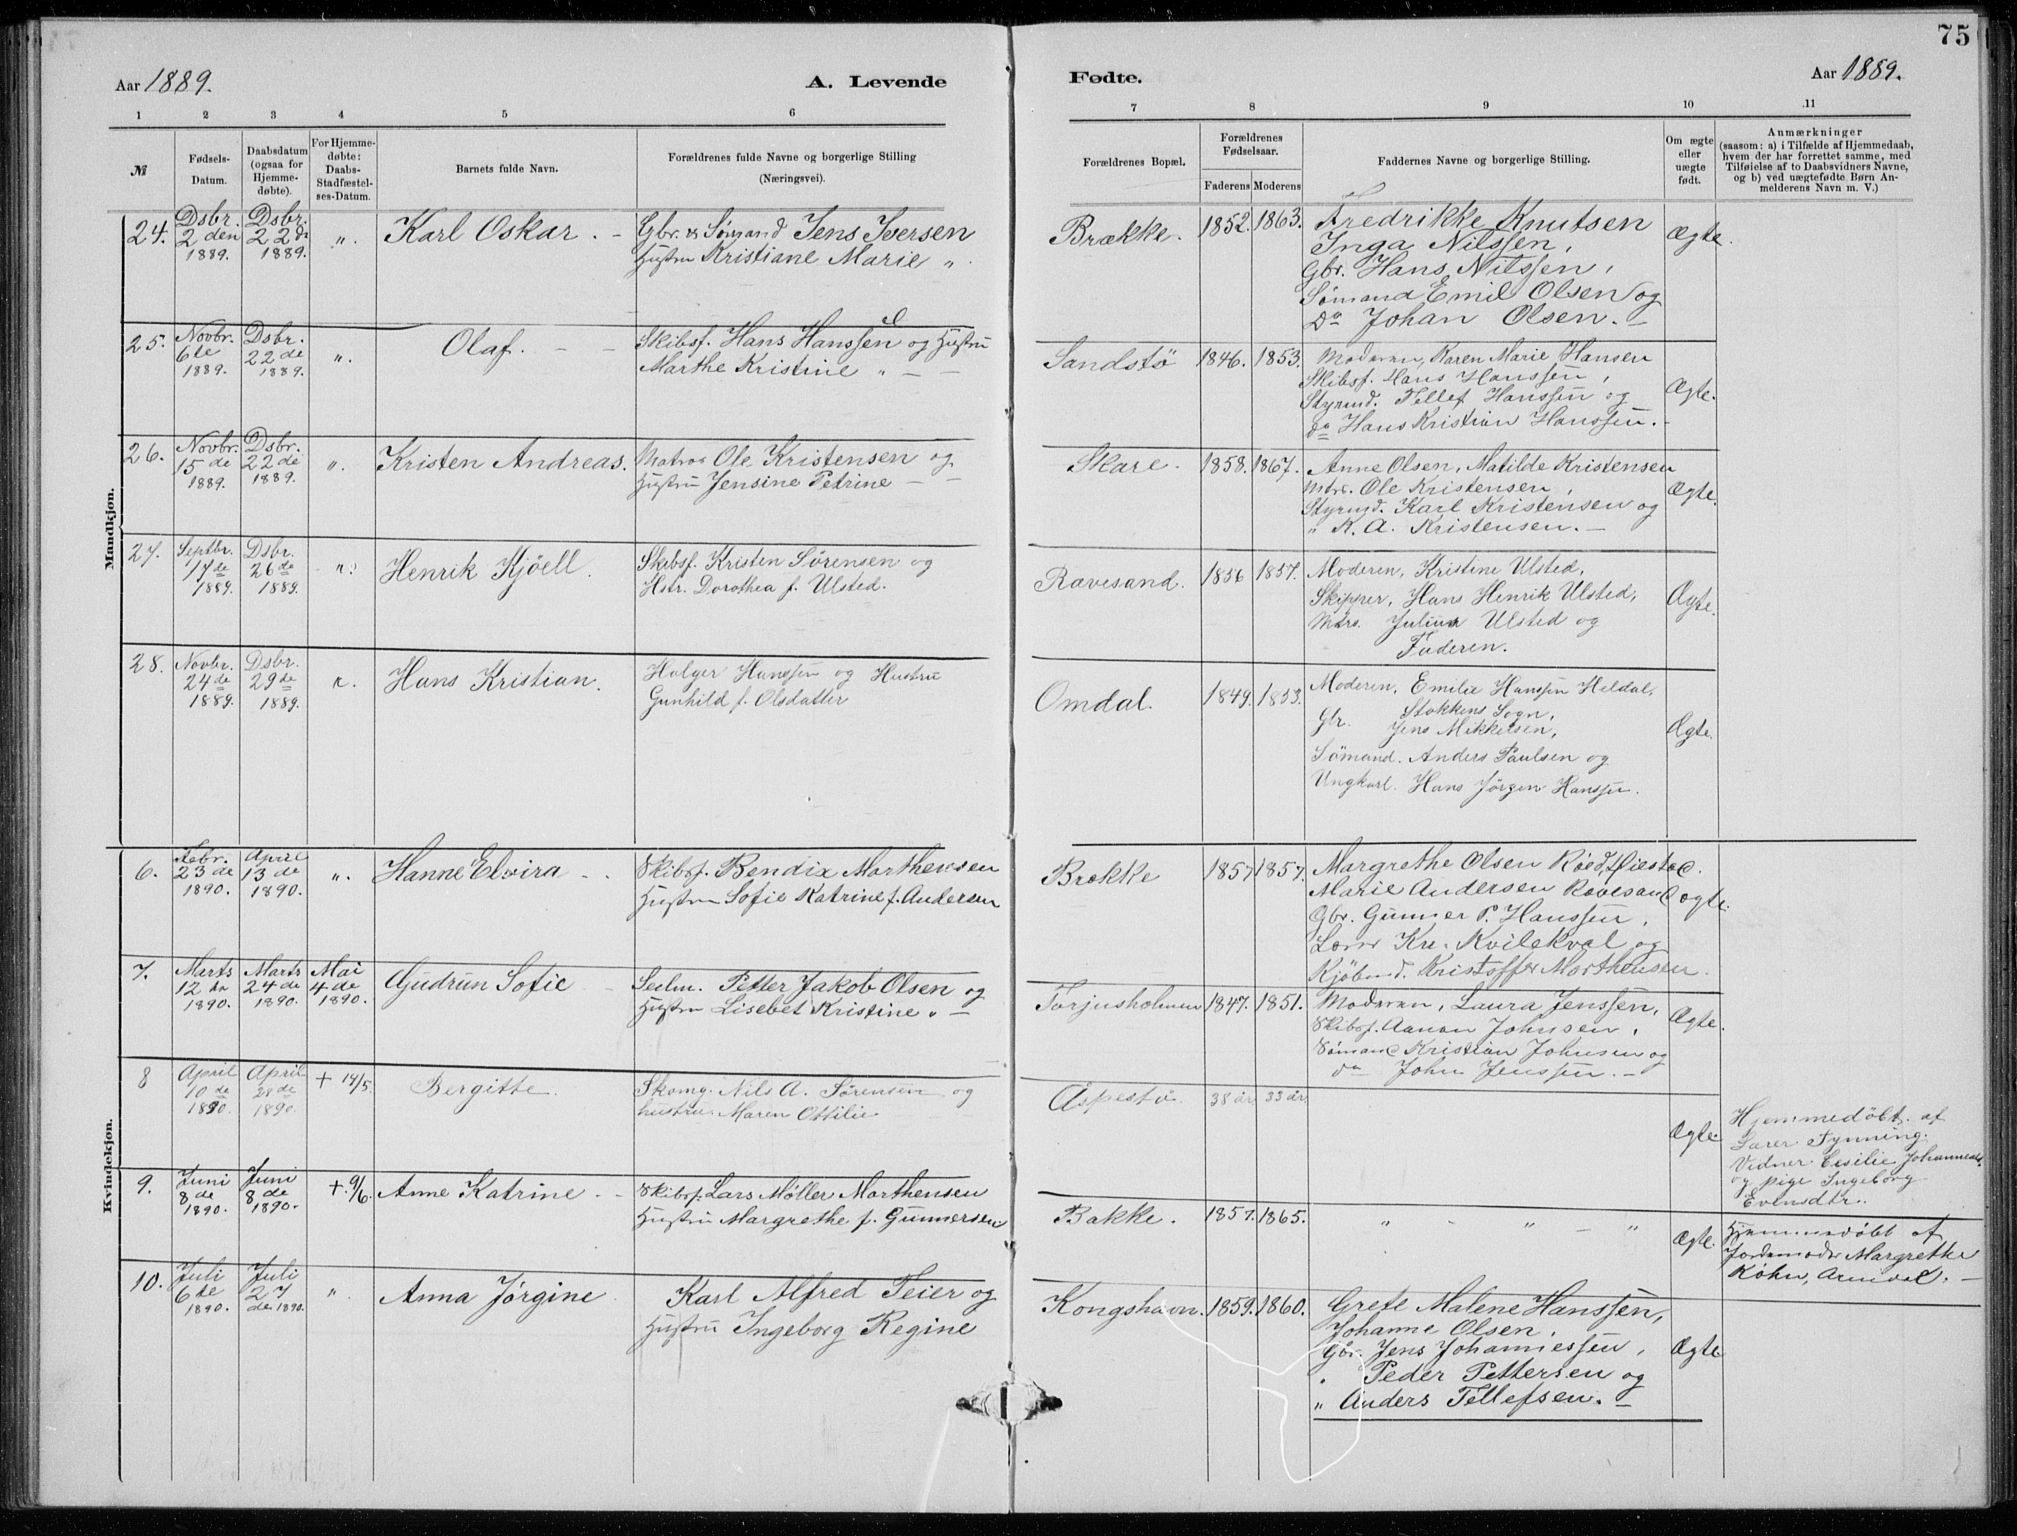 75
Aar 1889.
A. Levende
Fødte.
Aar 1889.
1 2 3 4 5 6 7 8 9 10 11
№
Fødsels-Datum.
Daabsdatum (ogsaa for Hjemme-døbte).
For Hjemme-døbte: Daabs-Stadfæstel-ses-Datum.
Barnets fulde Navn.
Forældrenes fulde Navne og borgerlige Stilling
(Næringsvei).
Forældrenes Bopæl.
Forældrenes Fødselsaar.
Faderens Moderens
Faddernes Navne og borgerlige Stilling.
Om ægte eller uægte født.
Anmærkninger
(saasom: a) i Tilfælde af Hjemmedaab,
hvem der har forrettet samme, med
Tilføielse af to Daabsvidners Navne,
og b) ved uægtefødte Børn An-
melderens Navn m. V.)
Mandkjøn.
24. Dsbr. 2den 1889. Dsbr. 22de 1889. „. Karl Oskar. –
Gbr. & Sømand Jens Iversen
Hustru Kristiane Marie „.
Brække. 1852. 1863.
Fredrikke Knutsen
Inga Nilssen,
Gbr. Hans Nilssen,
Sømand Emil Olsen og
Do Johan Olsen. –
Ægte.
25. Novbr. 6te 1889. Dsbr. 22de 1889. „. Olaf. – –
Skibsf. Hans Hanssen og Hustru
Marthe Kristine „ – –
Sandstø 1846. 1853.
Moderen, Karen Marie Hansen
Skibsf. Hans Hanssen,
Styrmd. Tellef Hanssen og
do Hans Kristian Hanssen. –
Ægte.
26. Novbr. 15de 1889. Dsbr. 22de 1889. „. Kristen Andreas.
Matros Ole Kristensen og
Hustru Jensine Petrine – –
Skare. 1858. 1867.
Anne Olsen, Matilde Kristensen
Mtrs. Ole Kristensen,
Styrmd. Karl Kristensen og
„ K. A. Kristensen. –
Ægte.
27. Septbr. 17de 1889. Dsbr. 26de 1889. Henrik Kjöell.
Skibsf. Kristen Sørensen og
Hstr. Dorothea f. Ulsted.
Ravesand. 1856 1857.
Moderen, Kristine Ulsted,
Skipper, Hans Henrik Ulsted,
Mtrs. Julius Ulsted og
Faderen.
Ægte.
28. Novbr. 24de 1889. Dsbr. 29de 1889. Hans Kristian.
Holger Hanssen og Hustru
Gunhild f. Olsdatter
Omdal. 1849. 1853.
Moderen, Emilie Hanssen Heldal,
Stokkens Sogn,
Gbr. Jens Mikkelsen,
Sömand. Anders Paulsen og
Ungkarl. Hans Jörgen Hanssen.
Ægte.
Kvindekjøn.
6. Febr. 23de 1890. April 13de 1890. „. Hanne Elvira – –
Skibsf. Bendix Marthensen
Hustru Sofie Katrine f. Andersen
Brække 1857 1857.
Margrethe Olsen Røed,
Marie Andersen Ravesand
Gbr. Gunner P. Hanssen,
Lærer Kr. Kvilekval og
Kjöbmd. Kristoffer Marthensen.
ægte.
7. Marts 12te 1890. Marts 24de 1890. Mai 4de 1890. Gudrun Sofie –
Seilm. Petter Jakob Olsen og
Hustru Lisebet Kristine „ –
Torjusholmen 1847. 1851.
Moderen, Laura Jenssen,
Skibsf. Aanon Johnsen,
Sömand Kristian Johnsen og
do John Jenssen. –
Ægte.
8 April 10de 1890. April 28de 1890. + 14/5. Bergitte.
Skomg. Nils A. Sørensen og
hustru Maren Ottilie
Aspestø 38 år 33 år
Ægte.
Hjemmedöbt af
Lærer Fynning.
Vidner Cesilie Johannesd.
og pige Ingeborg
Evensdtr.
9. Juni 8de 1890. Juni 8de 1890. + 9/6. Anne Katrine. –
Skibsf. Lars Møller Marthensen
Hustru Margrethe f. Gunnersen
Bakke. 1857. 1865. „ – „ – „
Ægte.
Hjemmedöbt af
Jordemoder Margrethe
Køhn, Arendal. –
10. Juli 6te 1890. Juli 27de 1890. „ Anna Jørgine
Karl Alfred Feier og
Hustru Ingeborg Regine
Kongshavn. 1859. 1860.
Grete Malene Hanssen,
Johanne Olsen,
Gbr. Jens Johannessen,
„ Peder Pettersen og
„ Anders Tellefsen. –
Ægte